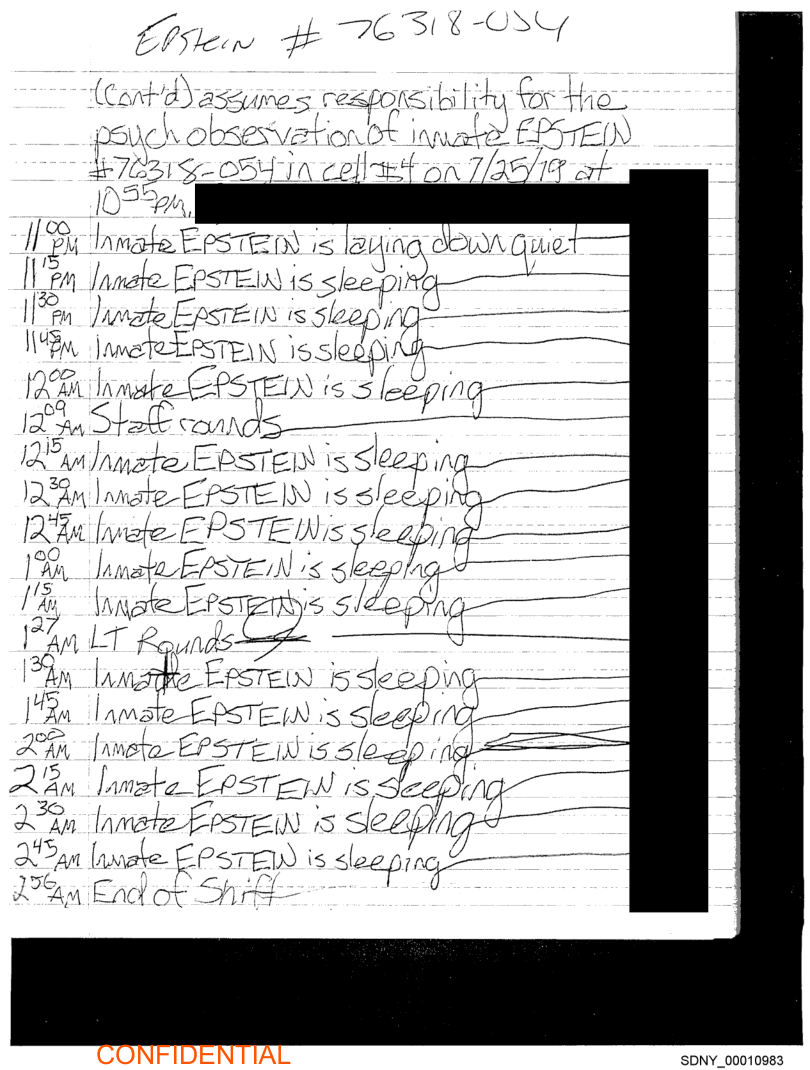 EPSTEIN # 76318-054
(Cont'd) assumes responsibility for the
psych observation of inmate EPSTEIN
#76318-054 in cell #4 on 7/25/19 at
10 55 PM.
11 00 PM Inmate EPSTEIN is laying down quiet
11 15 PM Inmate EPSTEIN is sleeping
11 30 PM Inmate EPSTEIN is sleeping
11 45 PM Inmate EPSTEIN is sleeping
12 00 AM Inmate EPSTEIN is sleeping
12 09 AM Staff rounds
12 15 AM Inmate EPSTEIN is sleeping
12 30 AM Inmate EPSTEIN is sleeping
12 45 AM Inmate EPSTEIN is sleeping
1 00 AM Inmate EPSTEIN is sleeping
1 15 AM Inmate EPSTEIN is sleeping
1 27 AM LT Rounds
1 30 AM Inmate EPSTEIN is sleeping
1 45 AM Inmate EPSTEIN is sleeping
2 00 AM Inmate EPSTEIN is sleeping
2 15 AM Inmate EPSTEIN is sleeping
2 30 AM Inmate EPSTEIN is sleeping
2 45 AM Inmate EPSTEIN is sleeping
2 56 AM End of Shift
CONFIDENTIAL
SDNY_00010983